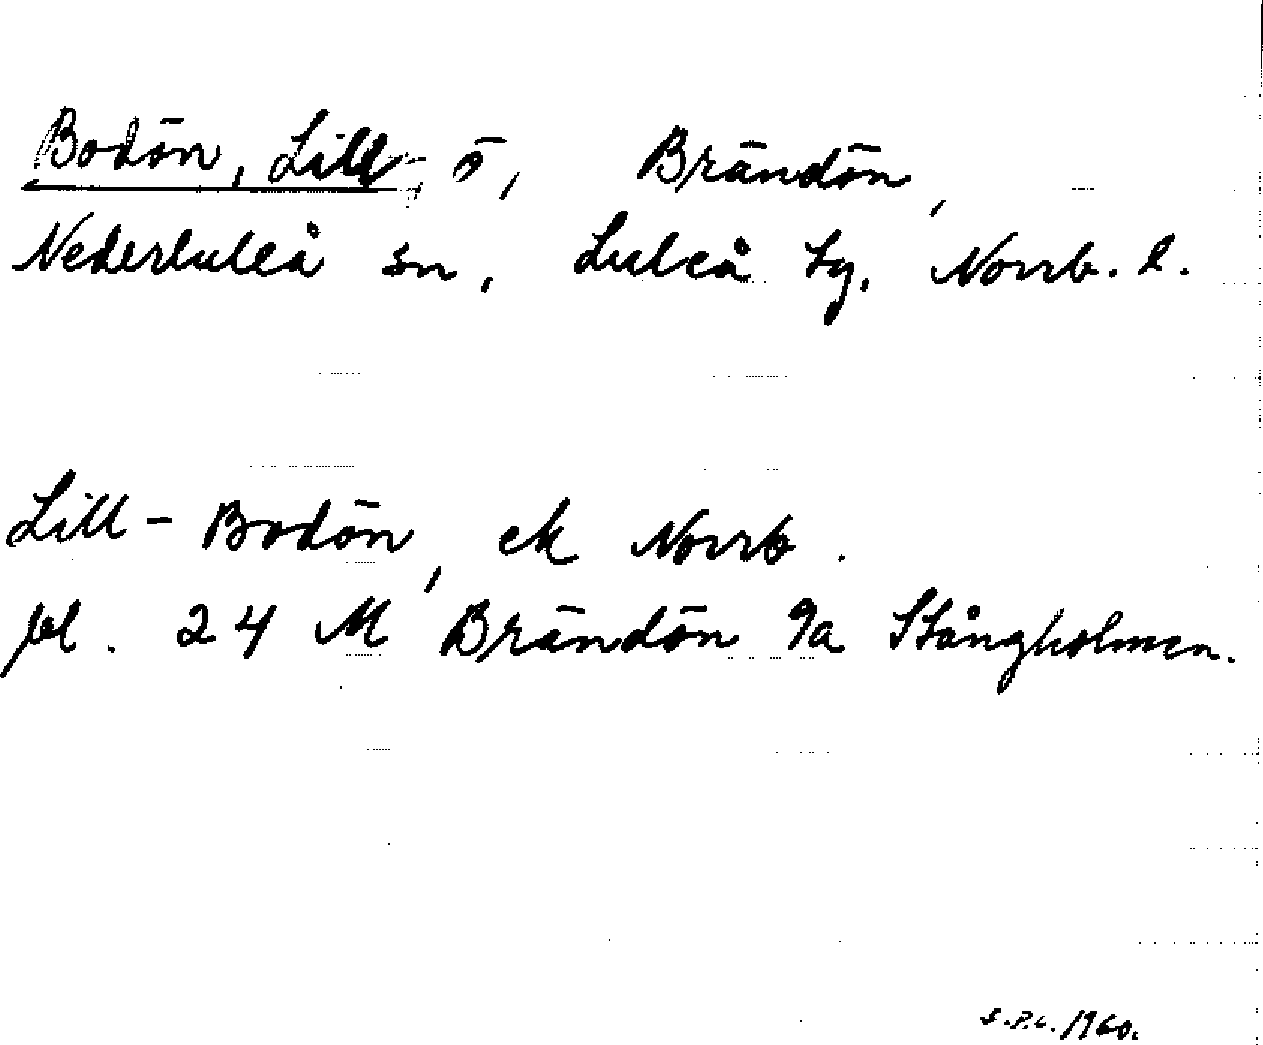 Bodön, Lill-, ö, Brändön,
Nederluleå sn, Luleå tg, Norrb. l.
Lill-Bodön, ek Norrb.
bl. 24 M Brändön 9a Stångholmen.
S.P.L. 1960.